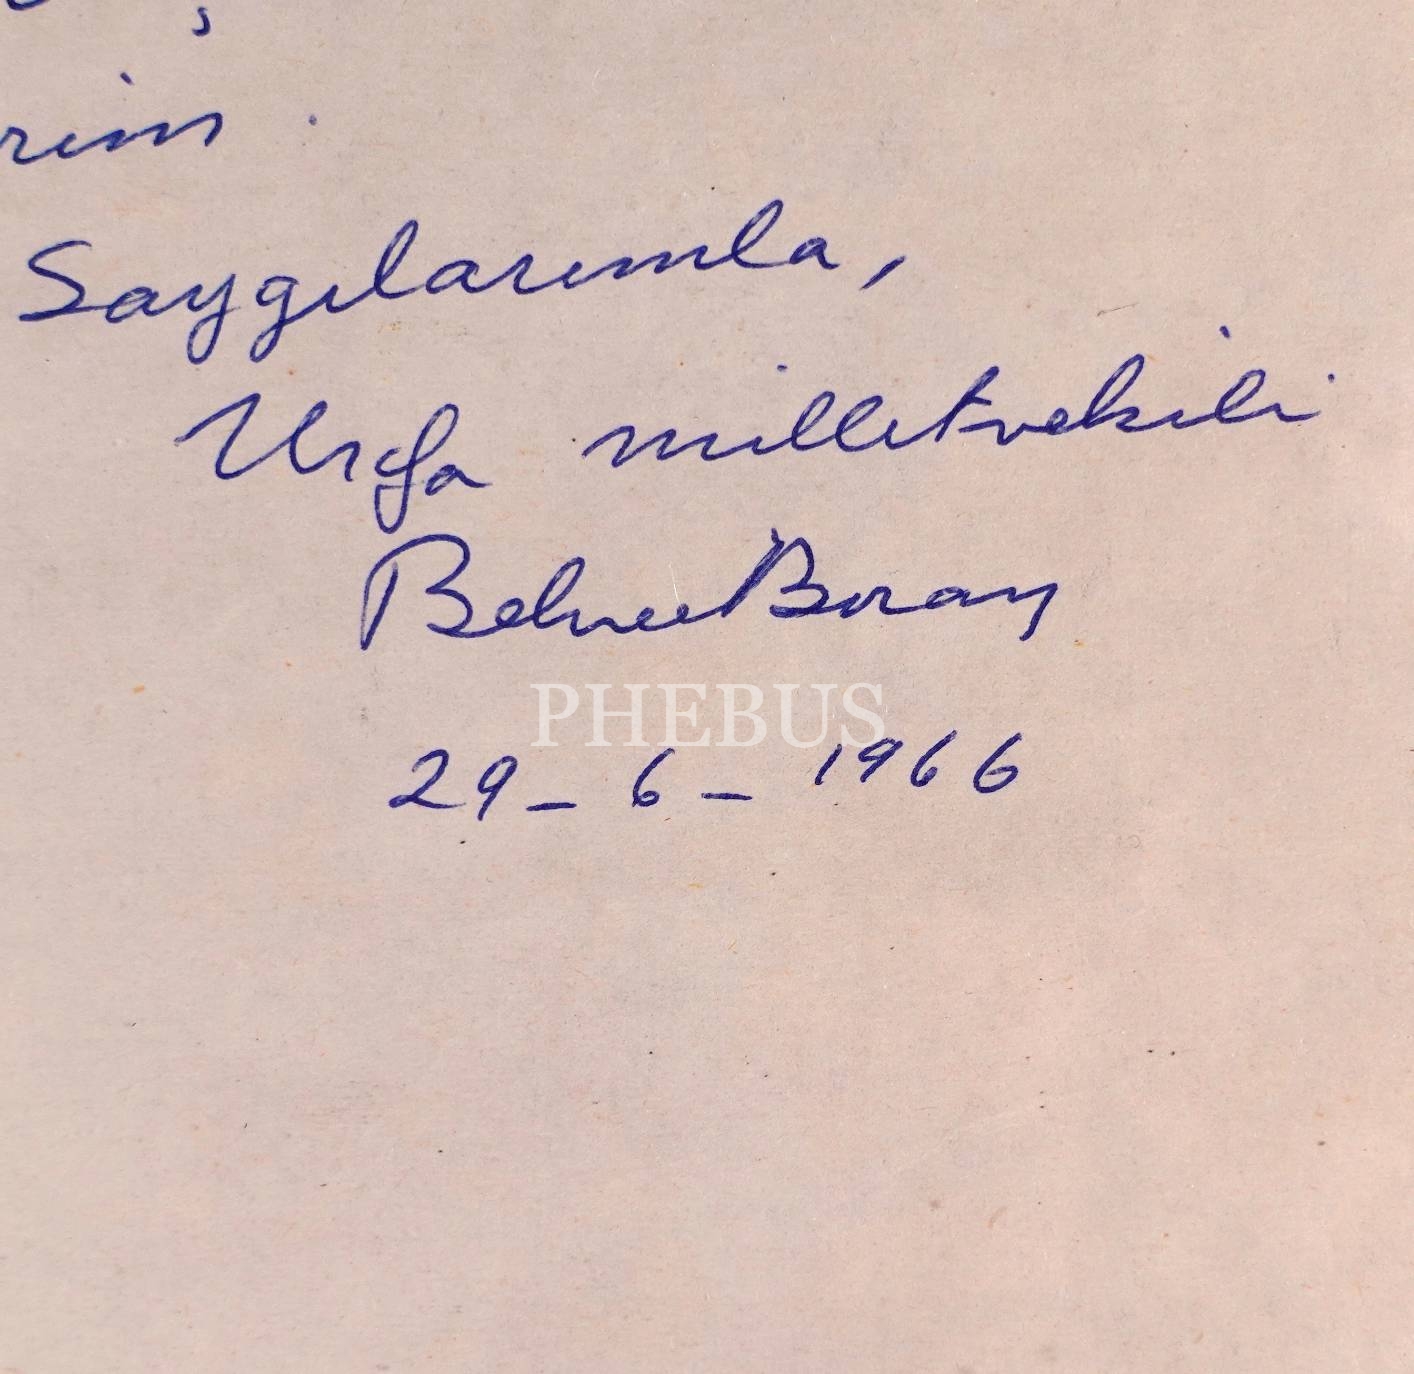 rim.
Saygılarımla,
Urfa milletvekili
Behice Boran
PHEBUS
29_6_1966